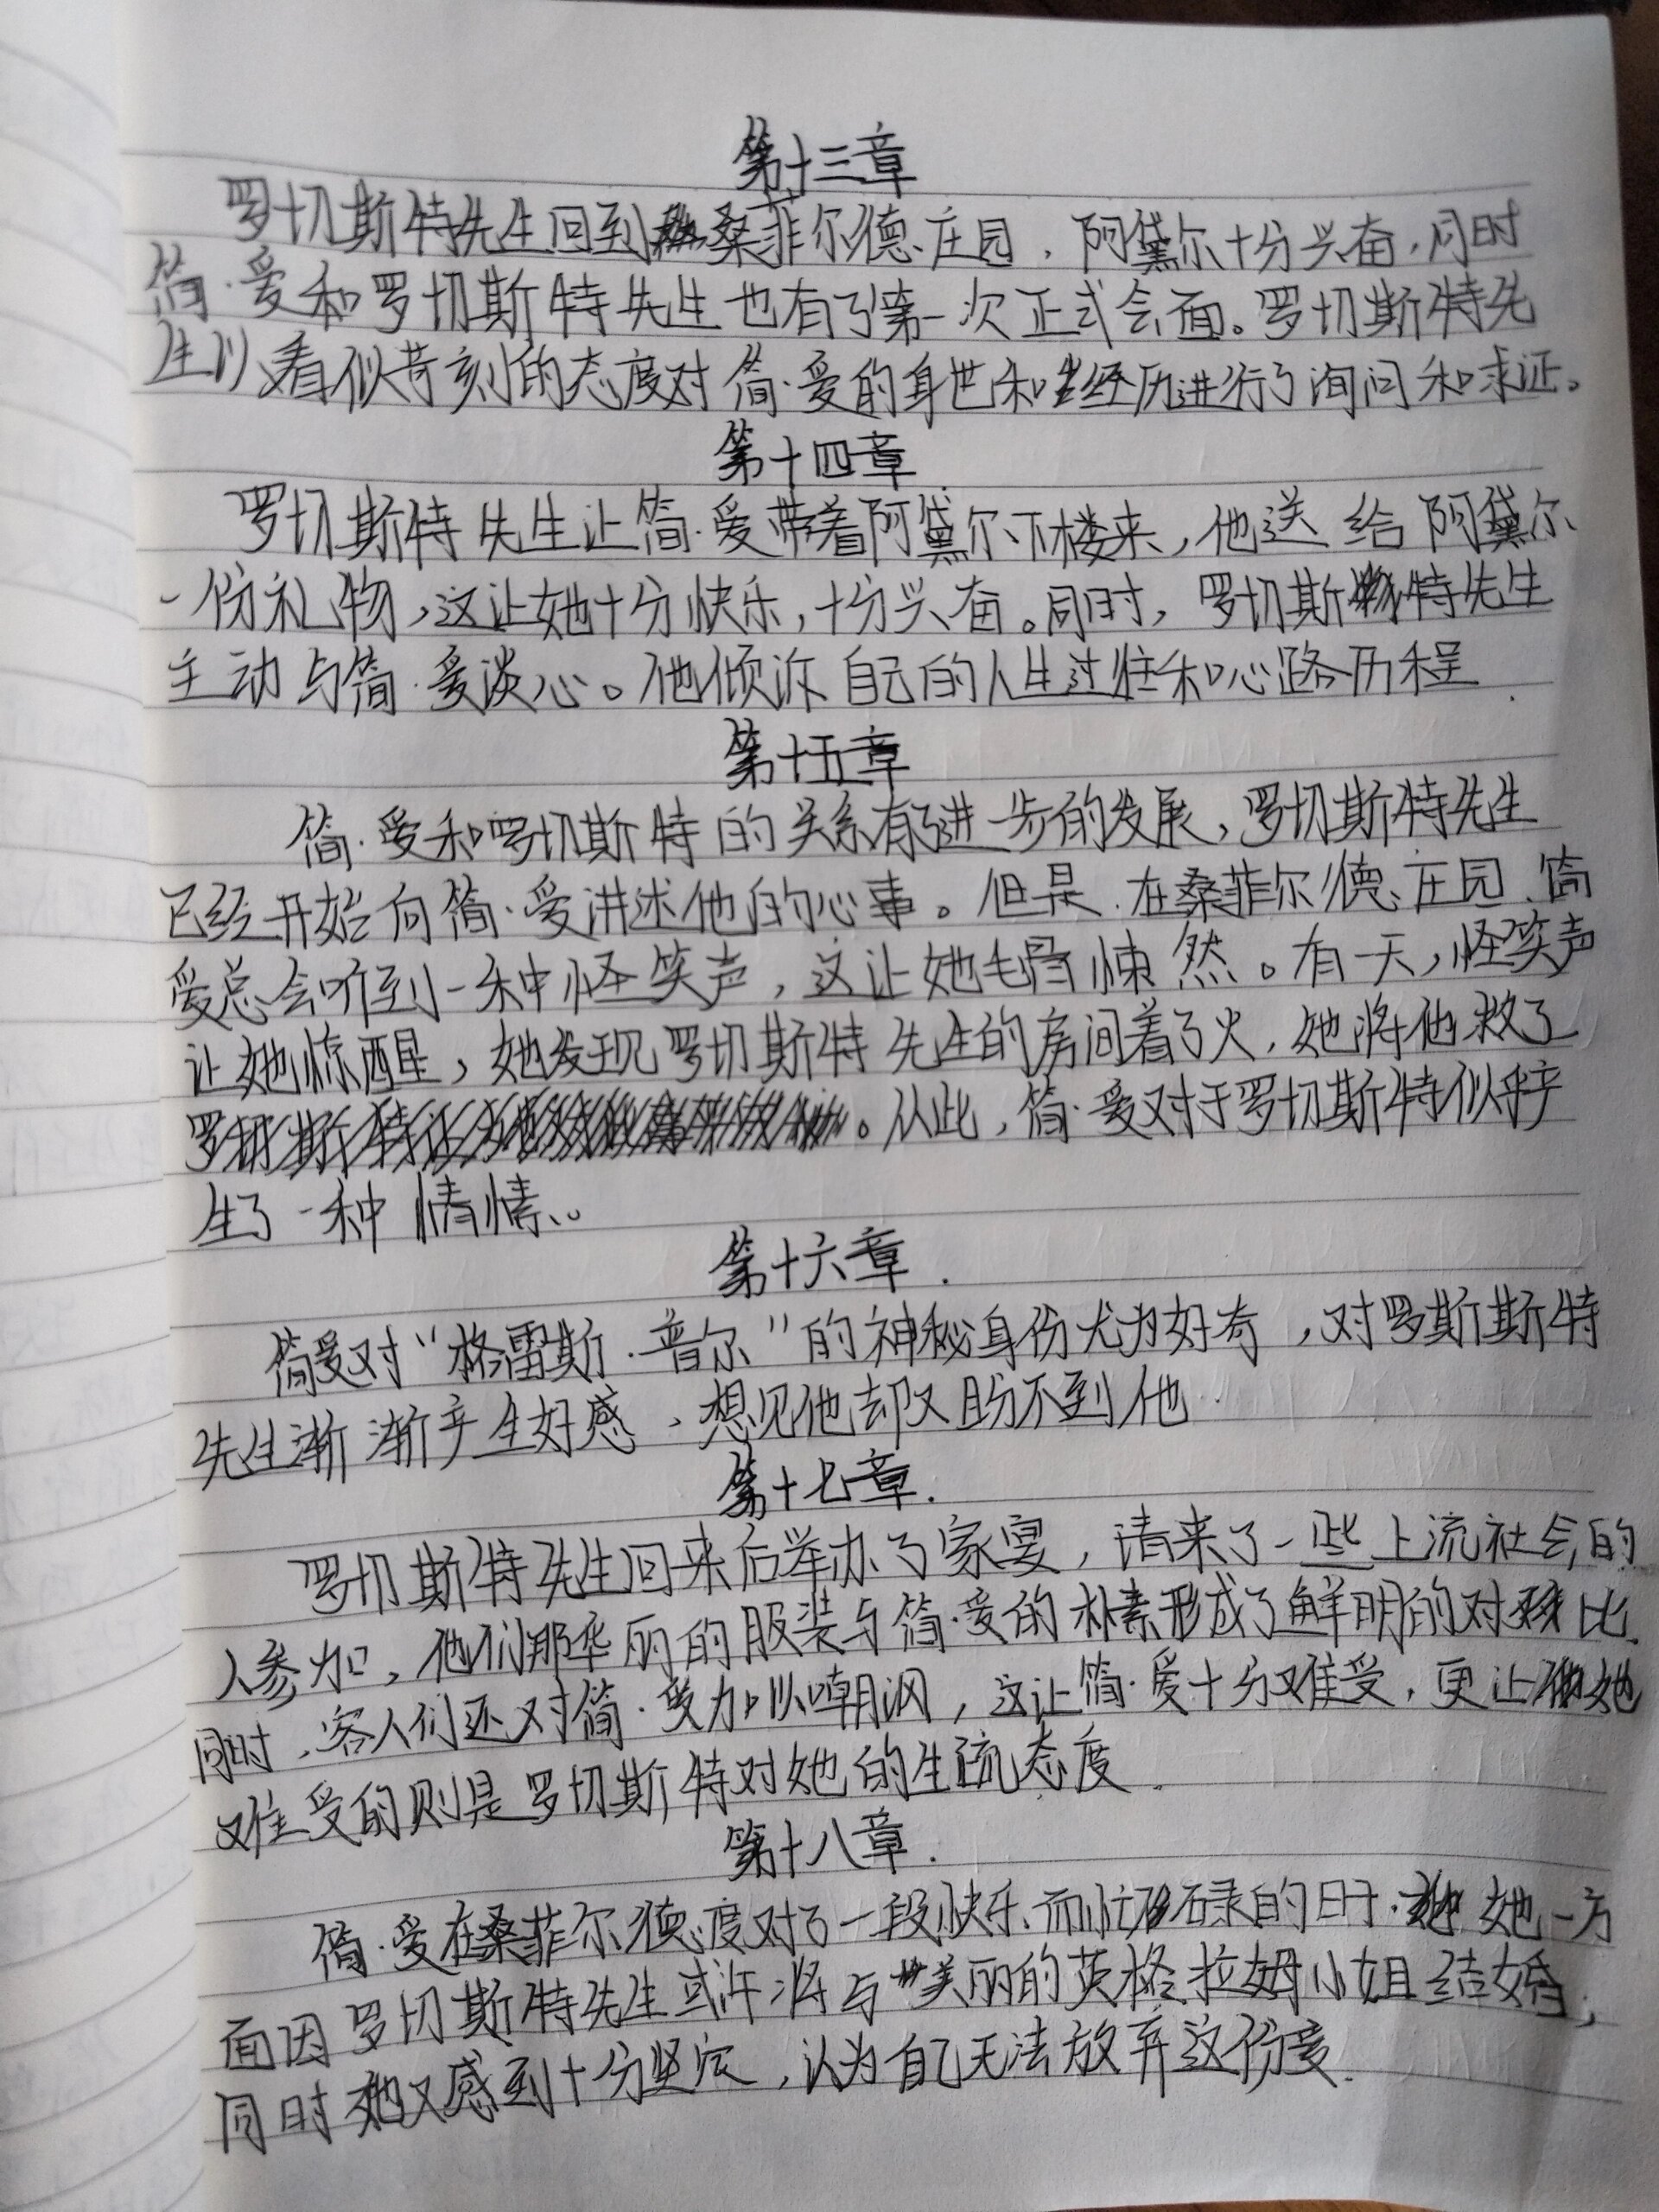 第十三章
罗切斯特先生回到桑菲尔德庄园，阿黛尔十分兴奋，同时
简·爱和罗切斯特先生也有了第一次正式会面。罗切斯特先
生以看似苛刻的态度对简·爱的身世和经历进行了询问和求证。
第十四章
罗切斯特先生让简·爱带着阿黛尔下楼来，他送给阿黛尔
一份礼物，这让她十分快乐，十分兴奋。同时，罗切斯特先生
主动与简·爱谈心。他倾诉自己的人生过往和心路历程.
第十五章
简·爱和罗切斯特的关系有了进一步的发展，罗切斯特先生
已经开始向简·爱讲述他的心事。但是，在桑菲尔德庄园，简
爱总会听到一种怪笑声，这让她毛骨悚然。有一天，怪笑声
让她惊醒，她发现罗切斯特先生的房间着了火，她将他救了
。从此，简·爱对于罗切斯特似乎产
生了一种情愫。
第十六章.
简爱对“格雷斯·普尔”的神秘身份尤为好奇，对罗斯斯特
先生渐渐产生好感，想见他却又盼不到他.
第十七章.
罗切斯特先生回来后举办了家宴，请来了一些上流社会的
人参加，他们那华丽的服装与简·爱的朴素形成了鲜明的对比.
同时，客人们还对简·爱加以嘲讽，这让简·爱十分难受，更让她
难受的则是罗切斯特对她的生疏态度.
第十八章.
简·爱在桑菲尔德度过了一段快乐而忙碌的日子.她一方
面因罗切斯特先生或许将与美丽的英格拉姆小姐结婚;
同时她又感到十分坚定，认为自己无法放弃这份爱.